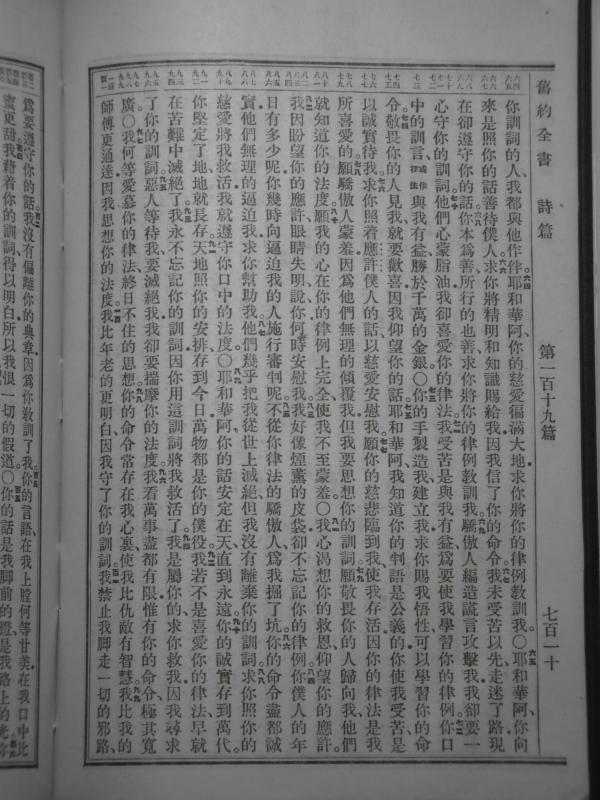 舊約全書 詩篇 第一百十九篇 七百一十
你訓詞的人我都與他作伴耶和華阿你的慈愛徧滿大地求你將你的律例教訓我○耶和華阿你向
來是照你的話善待僕人求你將精明和知識賜給我因我信了你的命令我未受苦以先走迷了路現
在卻遵守你的話你本爲善所行的也善求你將你的律例教訓我驕傲人編造謊言攻擊我我卻要一
心守你的訓詞他們心蒙脂油我卻喜愛你的律法我受苦是與我有益爲要使我學習你的律例你口
中的訓言或作律法與我有益勝於千萬的金銀○你的手製造我建立我求你賜我悟性可以學習你的命
令敬畏你的人見我就要歡喜因我仰望你的話耶和華阿我知道你的判語是公義的你使我受苦是
以誠實待我求你照着應許僕人的話以慈愛安慰我願你的慈悲臨到我使我存活因你的律法是我
所喜愛的願驕傲人蒙羞因爲他們無理的傾覆我但我要思想你的訓詞願敬畏你的人歸向我他們
就知道你的法度願我的心在你的律例上完全使我不至蒙羞○我心渴想你的救恩仰望你的應許
我因盼望你的應許眼睛失明說你何時安慰我我好像煙薰的皮袋卻不忘記你的律例你僕人的年
日有多少呢你幾時向逼迫我的人施行審判呢不從你律法的驕傲人爲我掘了坑你的命令盡都誠
實他們無理的逼迫我求你幫助我他們幾乎把我從世上滅絕但我沒有離棄你的訓詞求你照你的
慈愛將我救活我就遵守你口中的法度○耶和華阿你的話安定在天直到永遠你的誠實存到萬代
你堅定了地地就長存天地照你的安排存到今日萬物都是你的僕役我若不是喜愛你的律法早就
在苦難中滅絕了我永不忘記你的訓詞因你用這訓詞將我救活了我是屬你的求你救我因我尋求
了你的訓詞惡人等待我要滅絕我我卻要揣摩你的法度我看萬事盡都有限惟有你的命令極其寬
廣○我何等愛慕你的律法終日不住的思想你的命令常存在我心裏使我比仇敵有智慧我比我的
師傅更通達因我思想你的法度我比年老的更明白因我守了你的訓詞我禁止我腳走一切的邪路
爲要遵守你的話我沒有偏離你的典章因爲你教訓了我你的言語在我上膛何等甘美在我口中比
蜜更甜我藉着你的訓詞得以明白所以我恨一切的假道○你的話是我腳前的燈是我路上的光